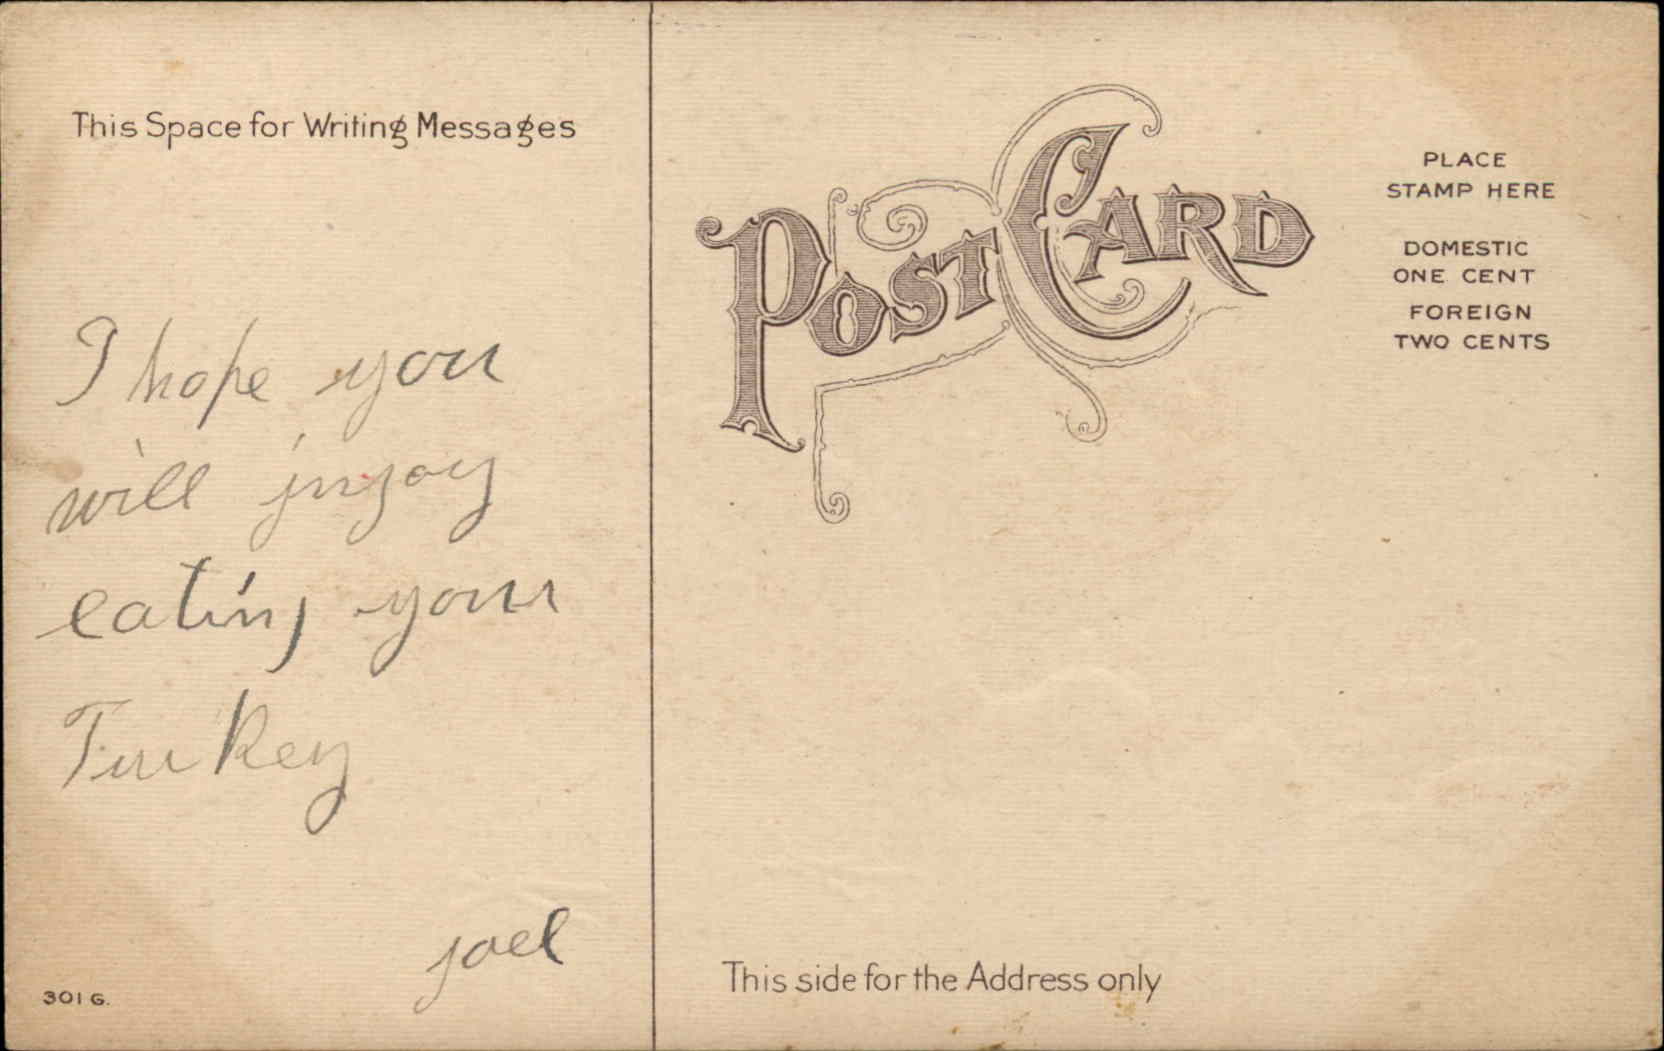 This Space for Writing Messages
I hope you
will injoy
eating your
Turkey
joel
301 G.
POST CARD
PLACE
STAMP HERE
DOMESTIC
ONE CENT
FOREIGN
TWO CENTS
This side for the Address only